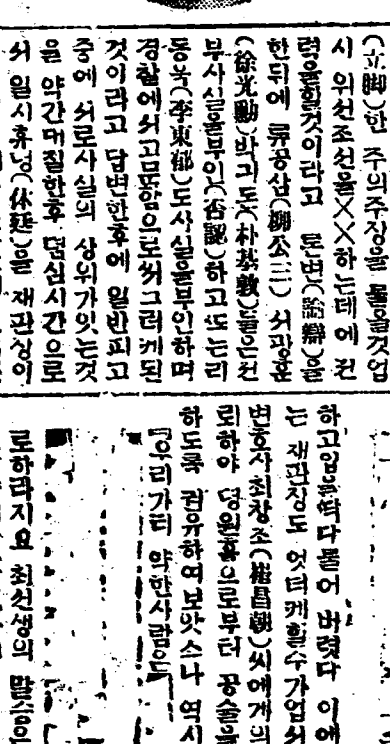 (立脚)한 주의주장을 물을것업
시 위선조선을××하는데에 진
력을할것이라고 론변(論辯)을
한뒤에 류공삼(柳公三) 서광훈
(徐光勳)박긔돈(朴基敦)들은전
부사실을부인(否認)하고또는리
동욱(李東郁)도사실을부인하며
경찰에서고문 그러케된
것이라고 답변한후에 일반피고
중에 서로사실의 상위가잇는것
을 약간대질한후 뎜심시간으로
서 일시휴뎡(休廷)을 재판장이
하고입을딱다물어 버렷다 이에
는 재판장도 엇더케할수가업서
변호사최창조(崔昌朝)씨에게의
뢰하야 뎡원흠으로부터 공술을
하도록 권유하여보앗스나 역시
『우리가티 약한사람은
로하라지요 최선생의 말슴은